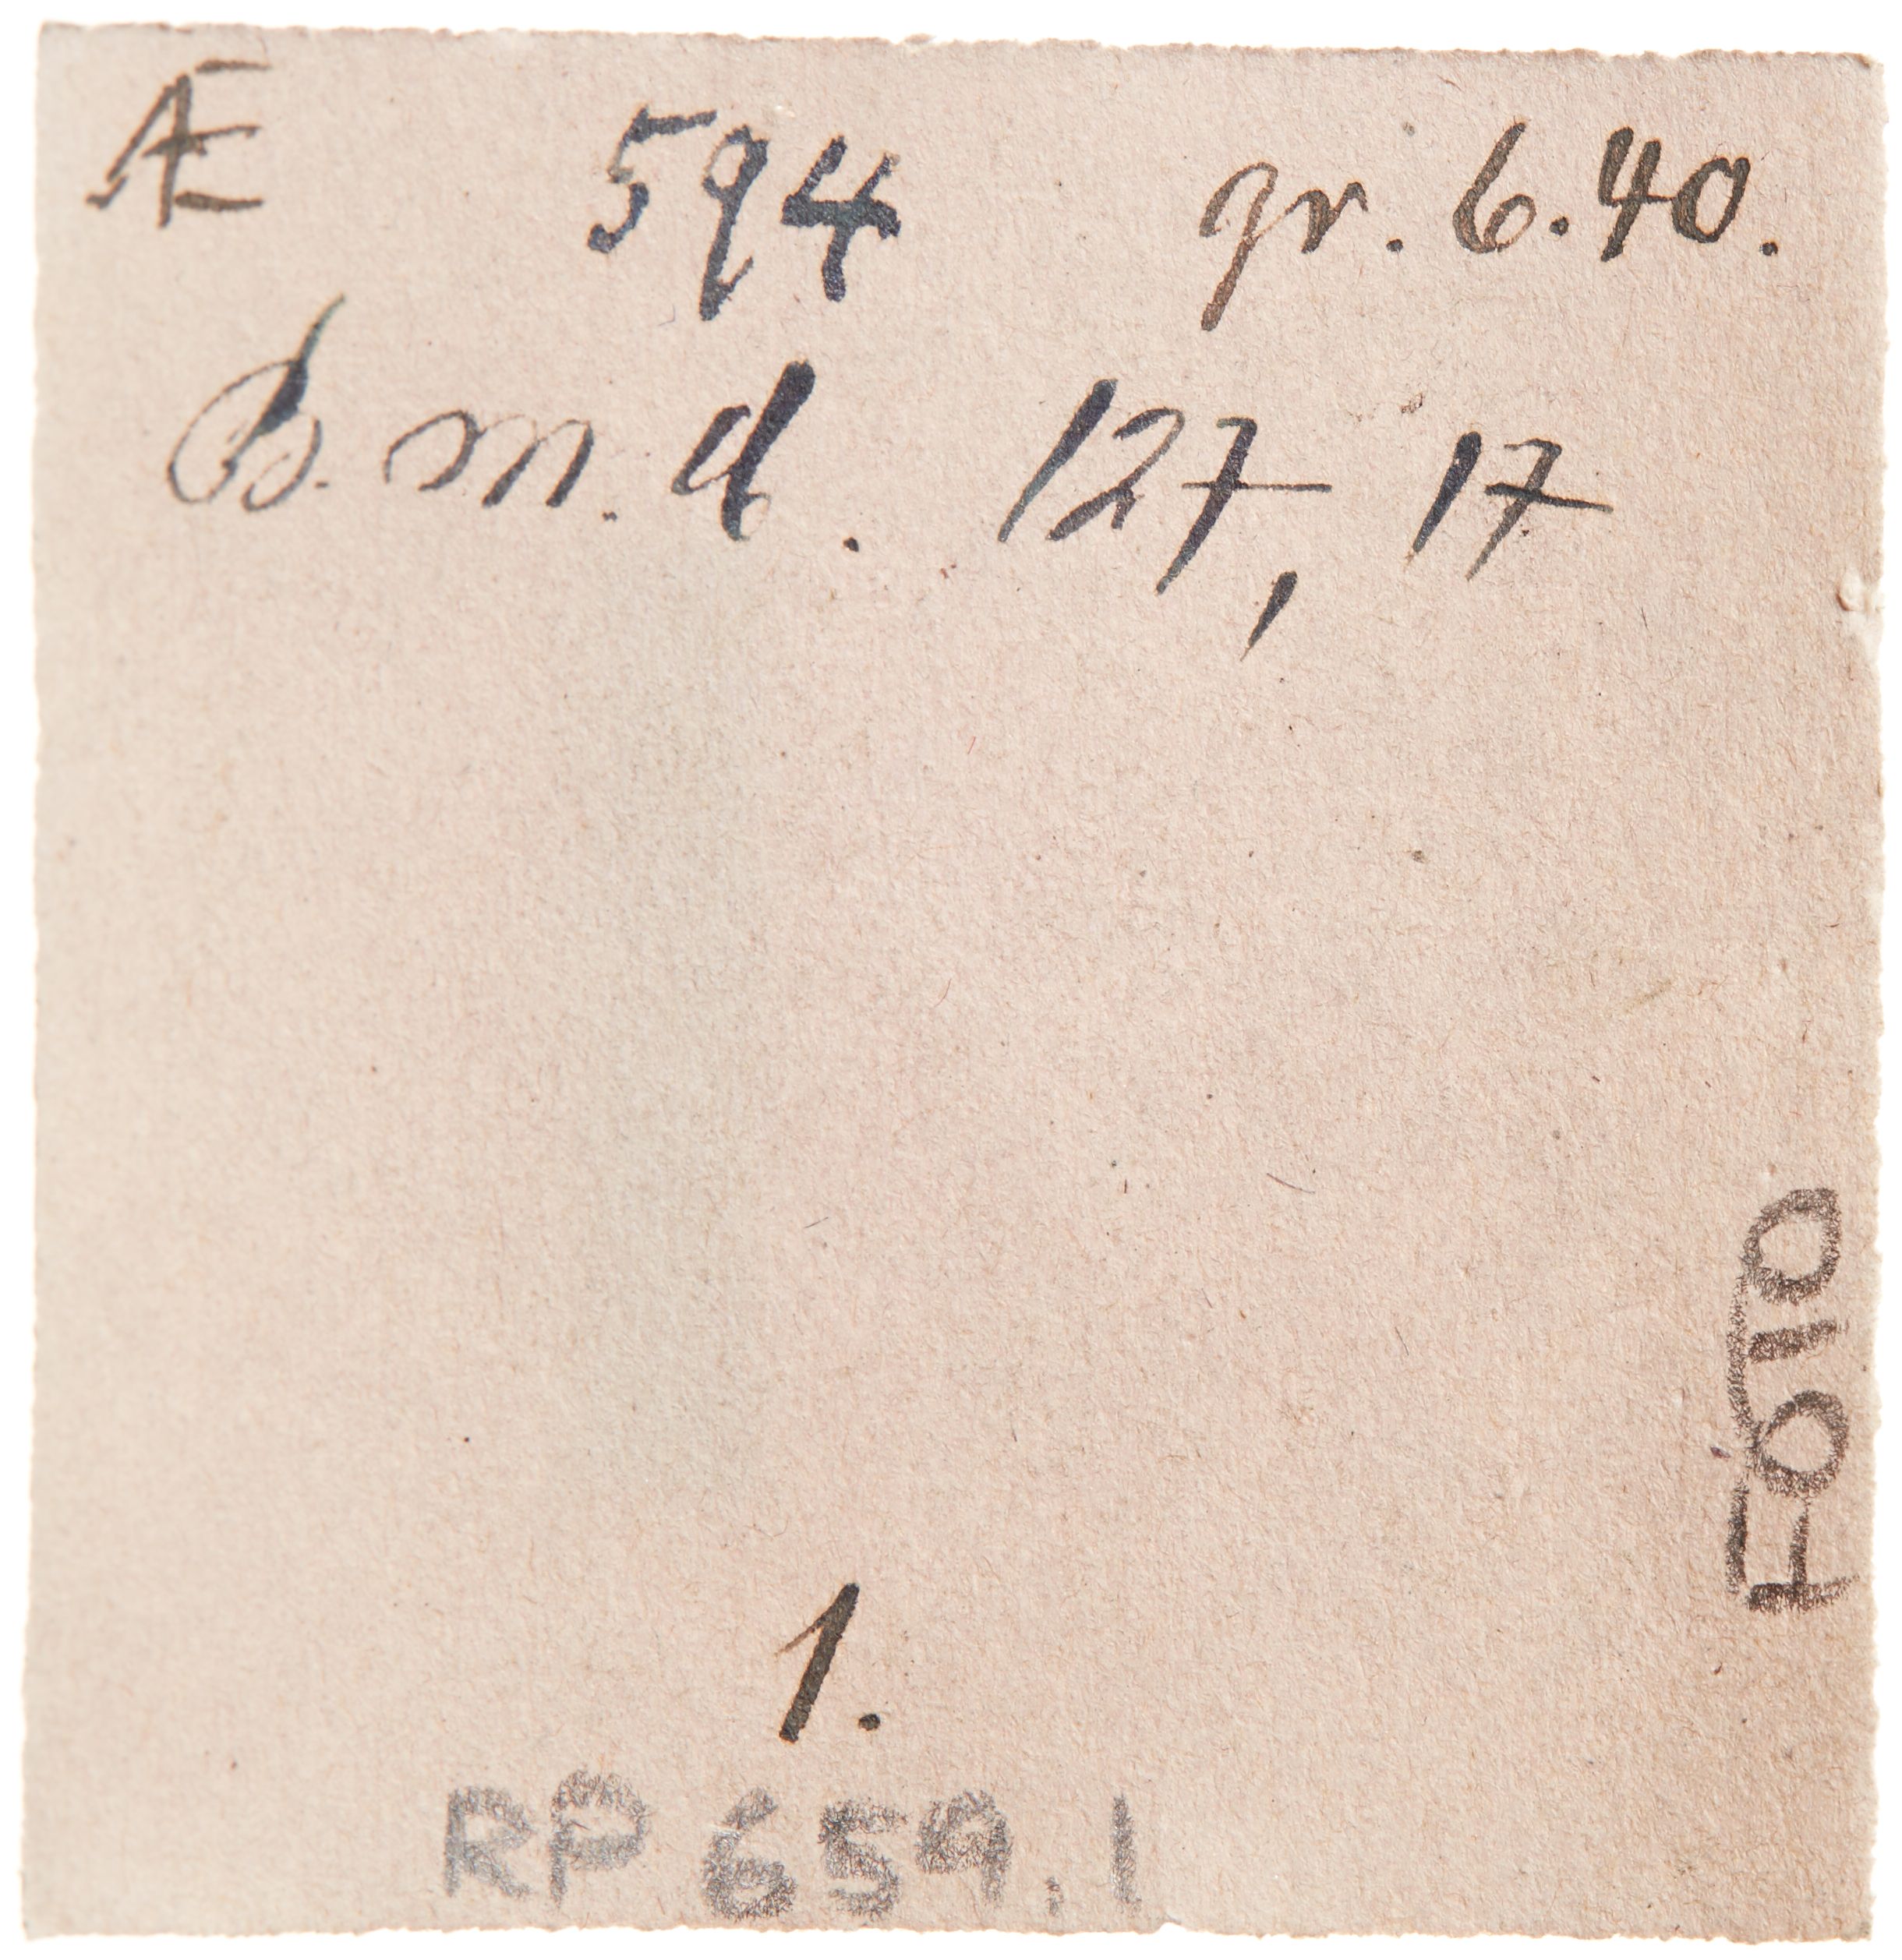 Æ 594 gr. 6.40.
B. m. d. 127, 17
FOTO
1.
RP 659.1